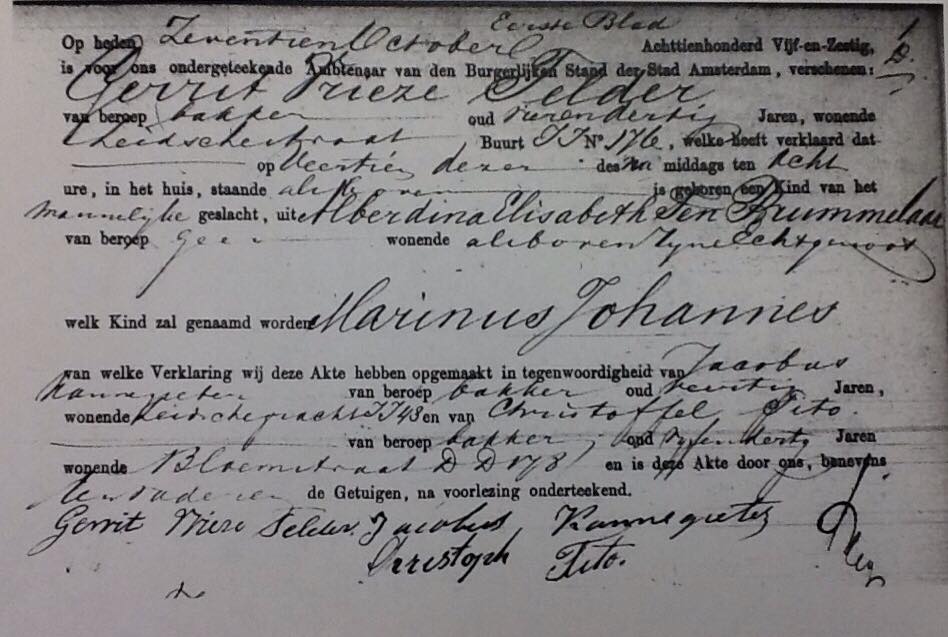 Eerste Blad
Op heden Zeventien October Achttienhonderd Vijf-en-Zestig,
is voor ons ondergeteekende Ambtenaar van den Burgerlijken Stand der Stad Amsterdam, verschenen:
Gerrit Frieze Felder
van beroep bakker oud vierendertig Jaren, wonende
Leidschestraat Buurt No 176, welke heeft verklaard dat
op Veertien dezer des na middags ten Acht
ure, in het huis, staande alsboven is geboren een Kind van het
Mannelijke geslacht, uit Alberdina Elisabeth Ten Brummelaar
van beroep Geen wonende alsboven Zyne Echtgenoot
welk Kind zal genaamd worden Marinus Johannes
van welke Verklaring wij deze Akte hebben opgemaakt in tegenwoordigheid van Jacobus
Kannegieten van beroep bakker oud Jaren,
wonende Leidschegracht en van Christoffel Tito.
van beroep bakker, oud Jaren
wonende Bloemstraat D D 178 en is deze Akte door ons, benevens
den Vader en de Getuigen, na voorlezing onderteekend.
Gerrit Felder. Jacobus, Kannegieter
Christoph Tito.